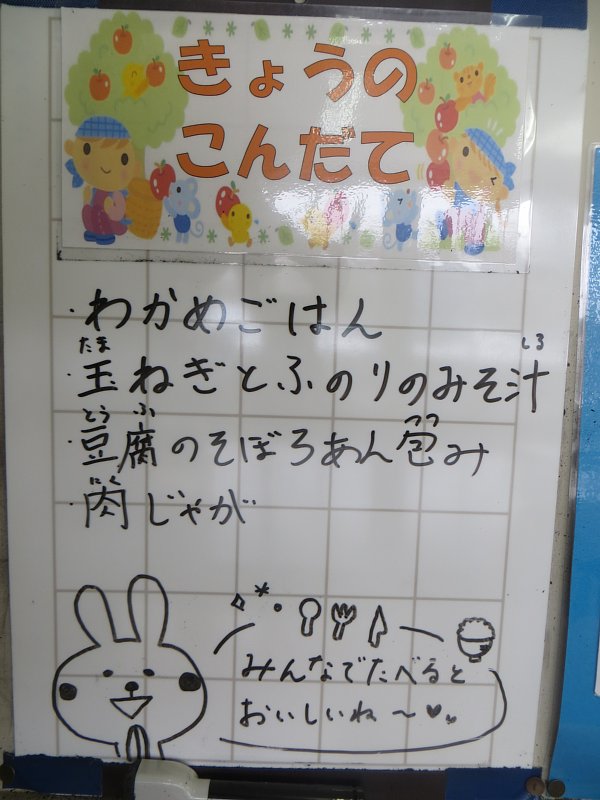 きょうの
こんだて
・わかめごはん
たま しる
・玉ねぎとふのりのみそ汁
とう ふ つつ
・豆腐のそぼろあん包み
にく
・肉じゃが
みんなでたべると
おいしいね〜♥♥